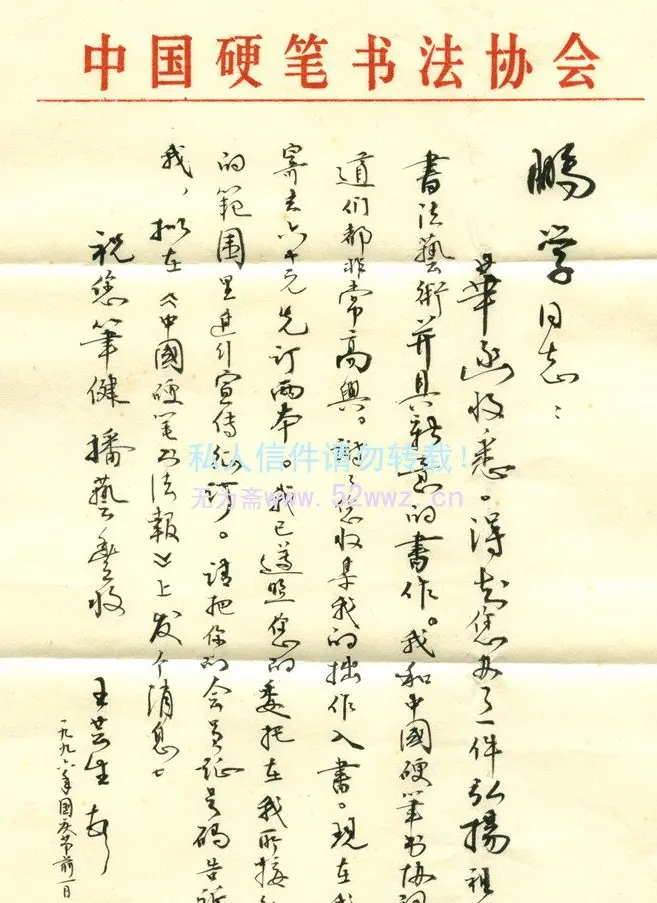 中国硬笔书法协会
鹏学同志：
华函收悉。得知您办了一件弘揚祖
書法藝術并具新意的書作。我和中國硬筆书协
道们都非常高興。謝谢您收集我的拙作入書。現在
寄去六十元先订两本。我已遵照您的委托在我所接
的範围里進行宣传征订。请把你的会员证号码告诉
我，拟在《中國硬笔书法報》上发个消息。
祝您筆健 播藝豐收
王芸生
一九九六年国庆节前一日
私人信件请勿转载！
无为斋www.52wwz.cn